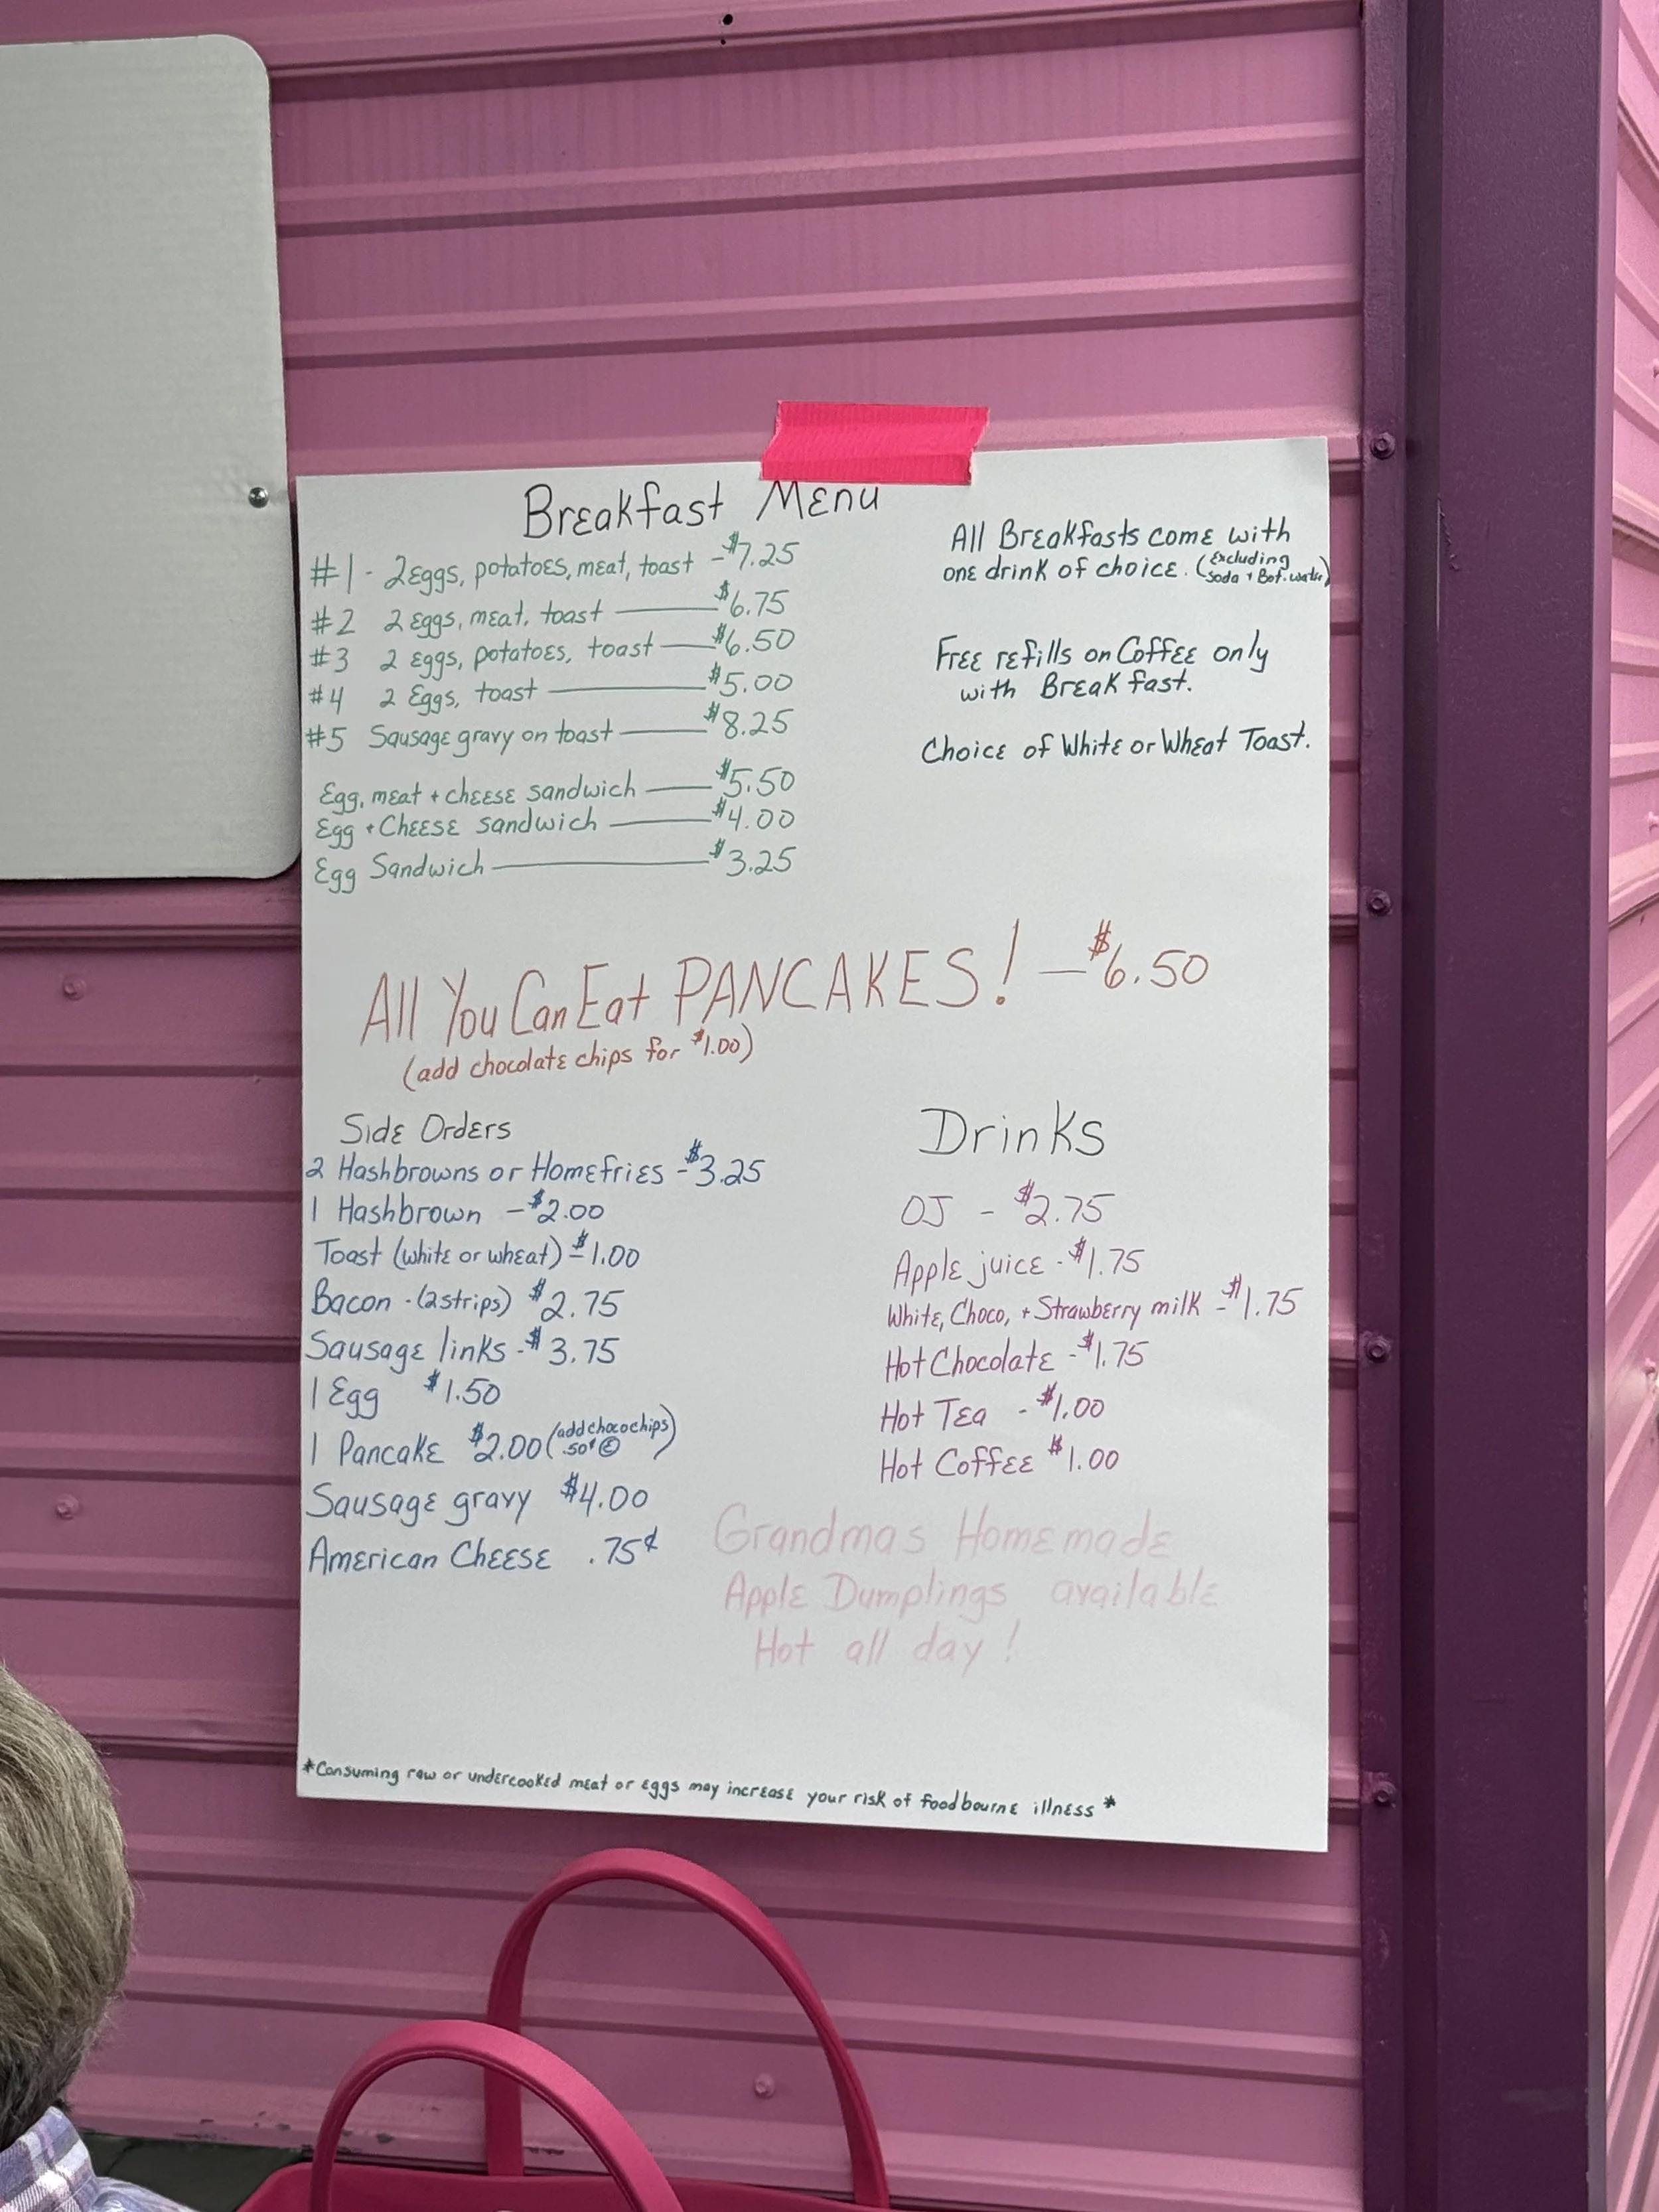 Breakfast Menu
#1 - 2 Eggs, potatoes, meat, toast - $7.25
#2 2 Eggs, meat, toast — $6.75
#3 2 Eggs, potatoes, toast — $6.50
#4 2 Eggs, toast — $5.00
#5 Sausage gravy on toast — $8.25
Egg, meat + cheese sandwich — $5.50
Egg + Cheese sandwich — $4.00
Egg Sandwich — $3.25
All Breakfasts come with
one drink of choice. (Excluding
Soda + Bot. water)
Free refills on Coffee only
with Breakfast.
Choice of White or Wheat Toast.
All You Can Eat PANCAKES! — $6.50
(add chocolate chips for $1.00)
Side Orders
2 Hashbrowns or Homefries - $3.25
1 Hashbrown - $2.00
Toast (white or wheat) - $1.00
Bacon - (2 strips) $2.75
Sausage links - $3.75
1 Egg $1.50
1 Pancake $2.00 (add choco chips)
.50¢
Sausage gravy $4.00
American Cheese .75¢
Drinks
OJ - $2.75
Apple juice - $1.75
White, Choco, + Strawberry milk - $1.75
Hot Chocolate - $1.75
Hot Tea - $1.00
Hot Coffee $1.00
Grandmas Homemade
Apple Dumplings available
Hot all day!
*Consuming raw or undercooked meat or eggs may increase your risk of foodbourne illness*